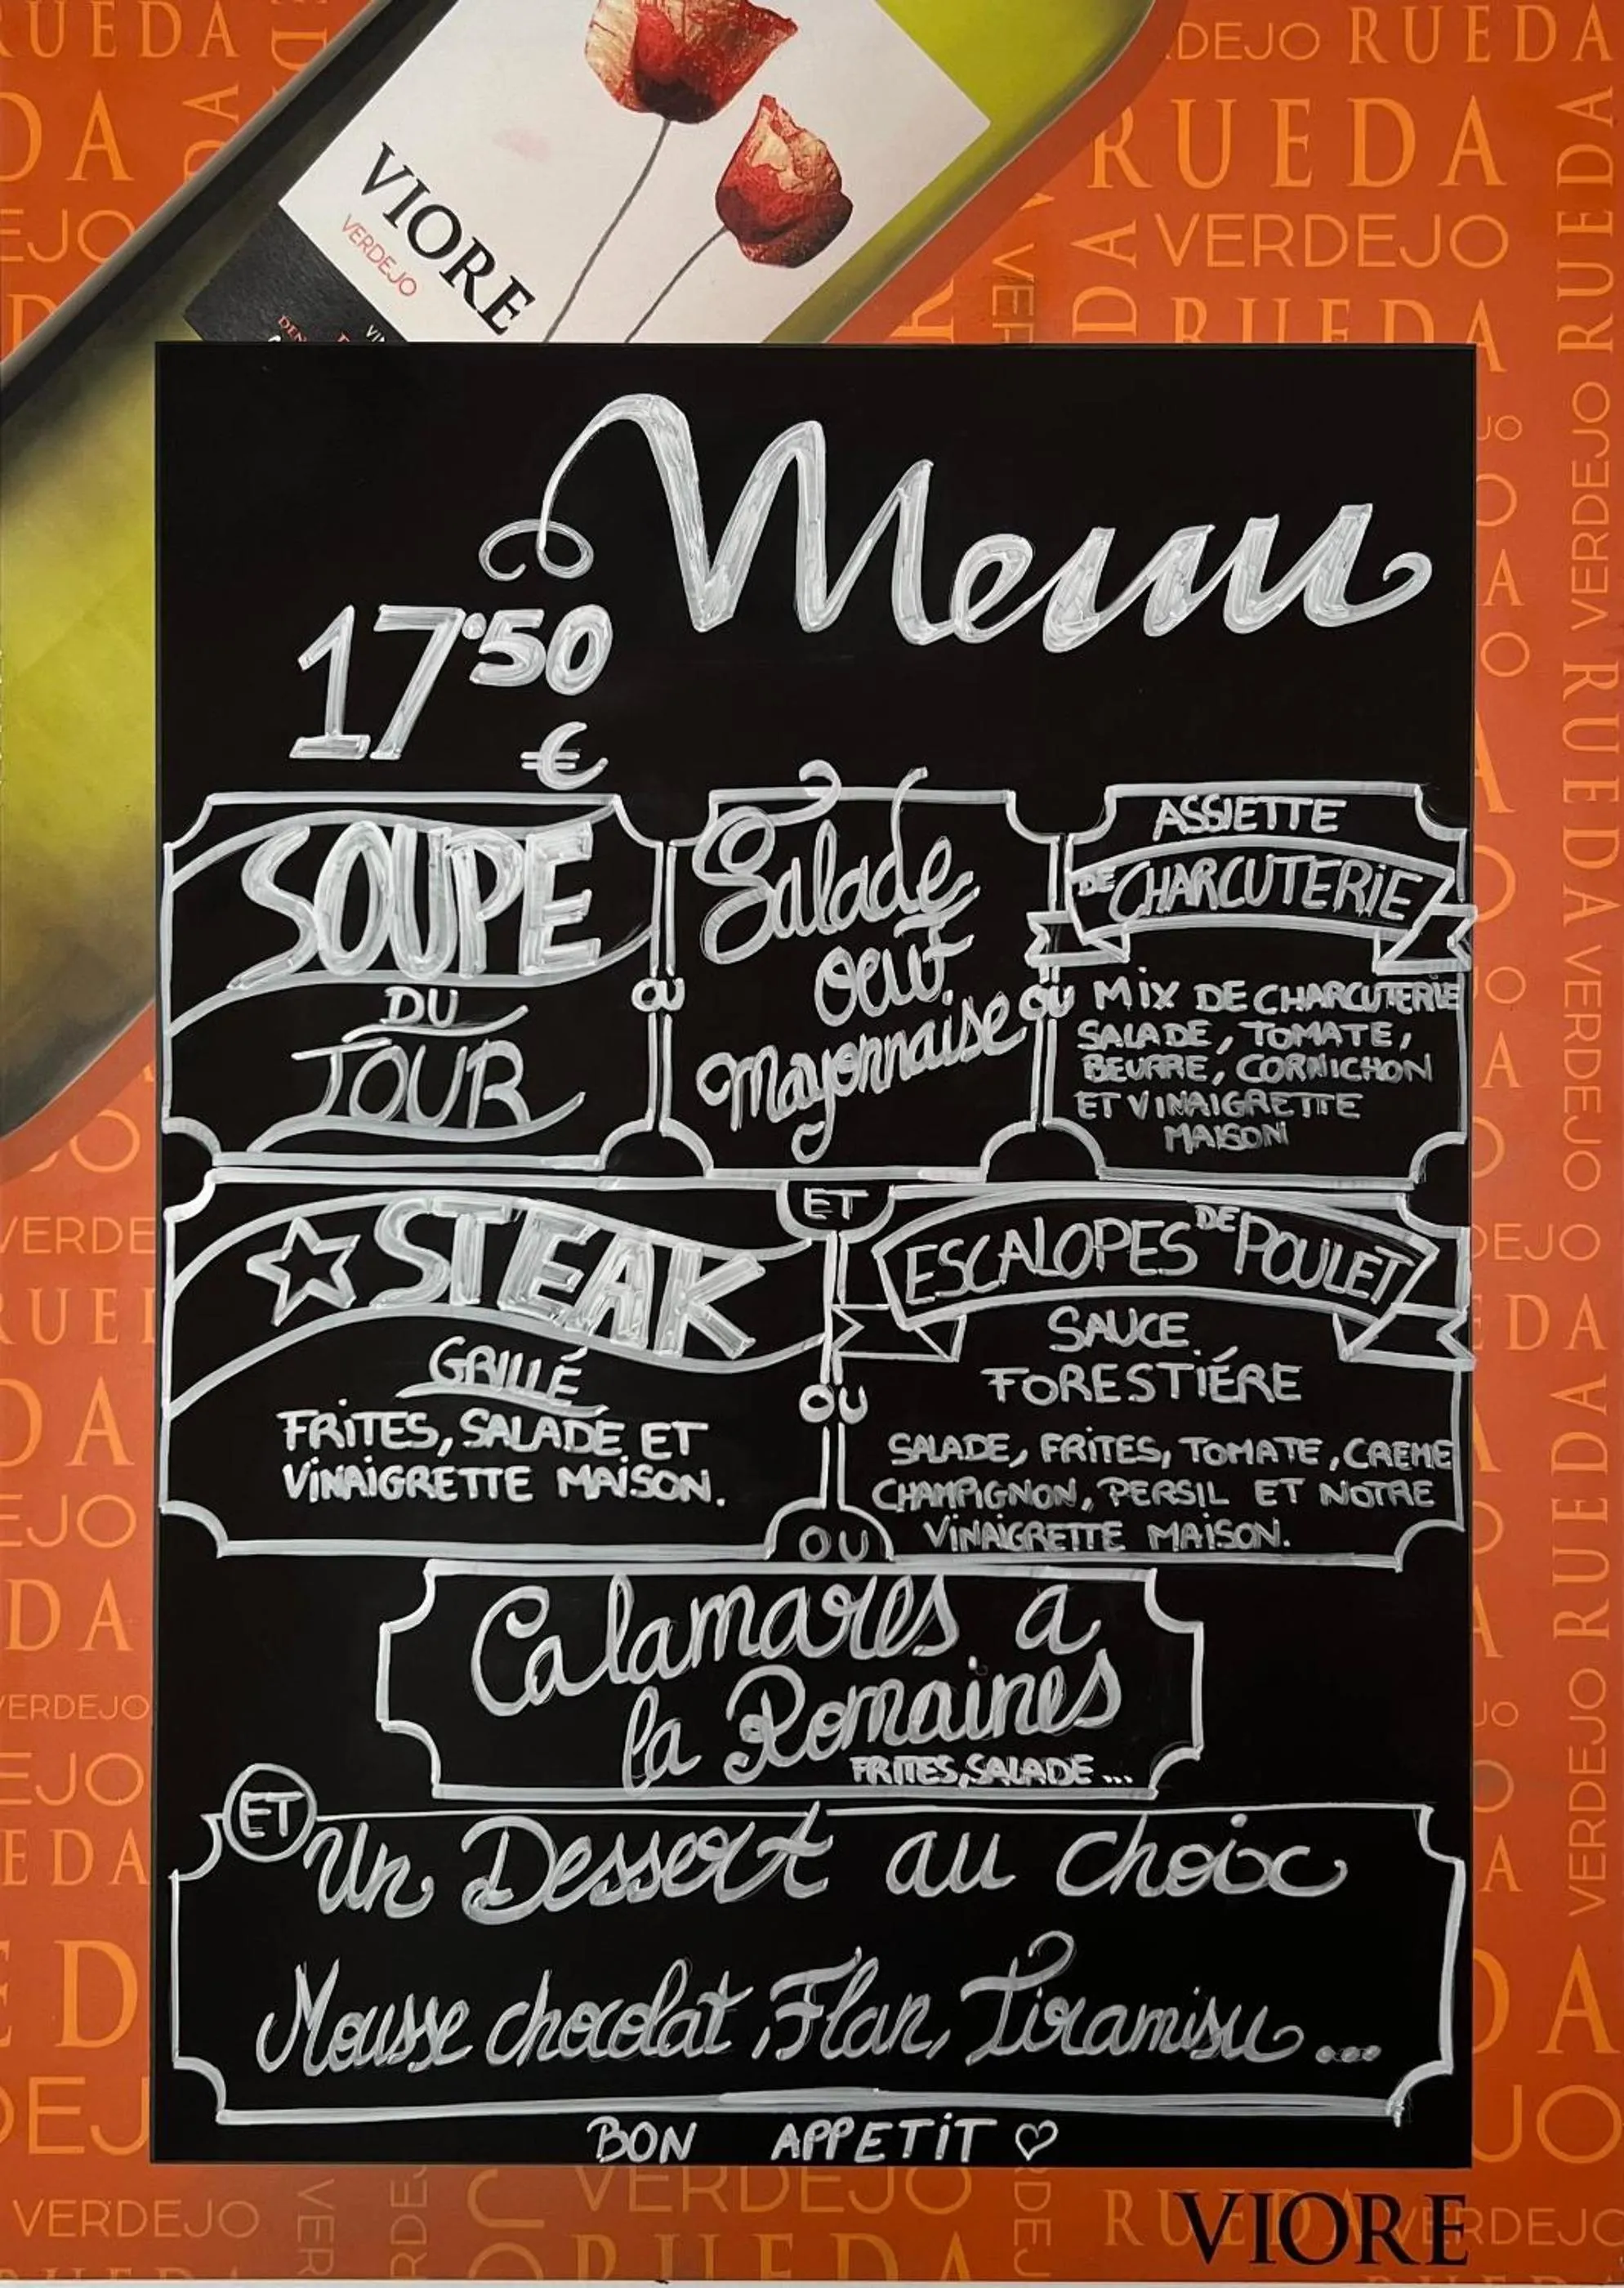 VIORE
VERDEJO
Menu
17.50
€
SOUPE
DU
JOUR
OU
Salade
oeuf
Mayonnaise
OU
ASSIETTE
DE CHARCUTERIE
MIX DE CHARCUTERIE
SALADE, TOMATE,
BEURRE, CORNICHON
ET VINAIGRETTE
MAISON
ET
STEAK
GRILLÉ
FRITES, SALADE ET
VINAIGRETTE MAISON.
OU
ESCALOPES DE POULET
SAUCE
FORESTIÉRE
SALADE, FRITES, TOMATE, CREME
CHAMPIGNON, PERSIL ET NOTRE
VINAIGRETTE MAISON.
OU
Calamares a
la Romaines
FRITES, SALADE ...
ET
Un Dessert au choix
Mousse chocolat, Flan, Tiramisu...
BON APPETIT ♡
VIORE
RUEDA
DEJO RUEDA
RUEDA
VERDEJO
RUEDA
RUEDA
VERDEJO
RUEDA
VERDEJO
RUEDA
VERDEJO
VERDEJO
VERDEJO
RUEDA